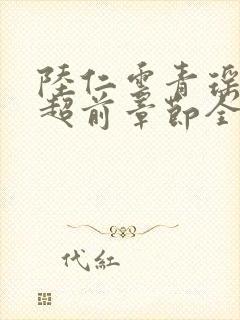 陸仁雲青瑶
超前章節全
代紅